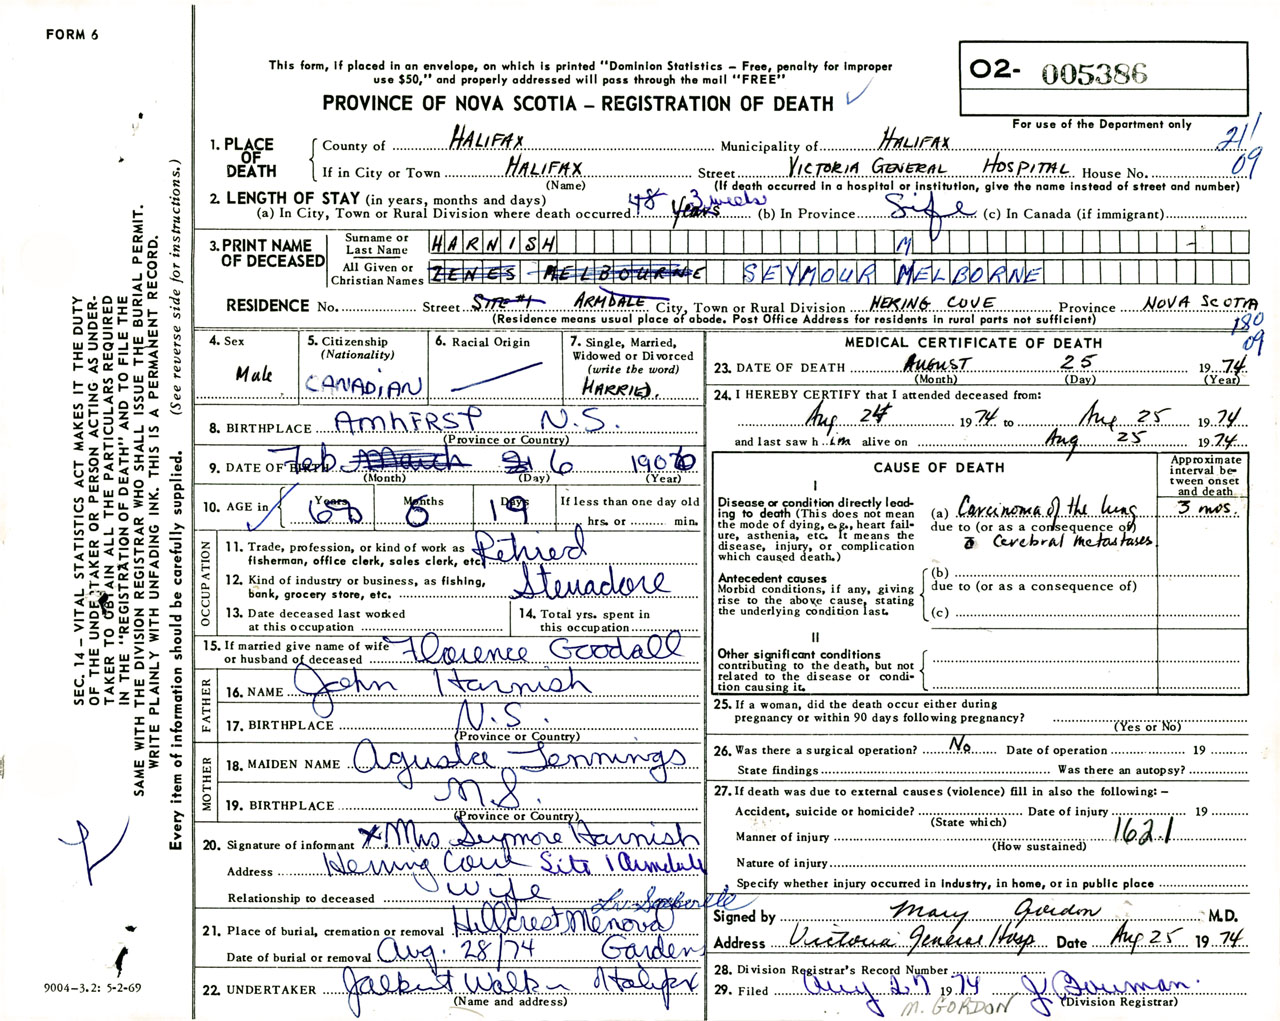 FORM 6
This form, if placed in an envelope, on which is printed "Dominion Statistics – Free, penalty for improper
use $50," and properly addressed will pass through the mail "FREE"
PROVINCE OF NOVA SCOTIA – REGISTRATION OF DEATH
02- 005386
For use of the Department only
21
09
1. PLACE OF DEATH
County of HALIFAX Municipality of HALIFAX
If in City or Town HALIFAX Street VICTORIA GENERAL HOSPITAL House No.
(Name) (If death occurred in a hospital or institution, give the name instead of street and number)
2. LENGTH OF STAY (in years, months and days)
(a) In City, Town or Rural Division where death occurred 48 years 3 weeks (b) In Province Life (c) In Canada (if immigrant)
3. PRINT NAME OF DECEASED
Surname or Last Name HARNISH M
All Given or Christian Names ZENES MELBOURNE SEYMOUR MELBORNE
RESIDENCE No. Street Site #1 ARMDALE City, Town or Rural Division HERING COVE Province NOVA SCOTIA
(Residence means usual place of abode. Post Office Address for residents in rural parts not sufficient)
180
09
4. Sex Male
5. Citizenship (Nationality) CANADIAN
6. Racial Origin
7. Single, Married, Widowed or Divorced (write the word) MARRIED.
8. BIRTHPLACE AMHERST N.S.
(Province or Country)
9. DATE OF BIRTH Feb. March 6 1906
(Month) (Day) (Year)
10. AGE in Years 68 Months 6 Days 19 If less than one day old
hrs. or min.
OCCUPATION
11. Trade, profession, or kind of work as fisherman, office clerk, sales clerk, etc. Retired
12. Kind of industry or business, as fishing, bank, grocery store, etc. Stevadore
13. Date deceased last worked at this occupation
14. Total yrs. spent in this occupation
15. If married give name of wife or husband of deceased Florence Goodall
FATHER
16. NAME John Harnish
17. BIRTHPLACE N.S.
(Province or Country)
MOTHER
18. MAIDEN NAME Agusta Jennings
19. BIRTHPLACE N.S.
(Province or Country)
20. Signature of informant x Mrs Seymore Harnish
Address Herring Cove Site 1 Armdale
Relationship to deceased Wife
Lr. Sackville
21. Place of burial, cremation or removal Hillcrest Menova
Date of burial or removal Aug. 28/74 Gardens
22. UNDERTAKER Walker Halifax
(Name and address)
MEDICAL CERTIFICATE OF DEATH
23. DATE OF DEATH AUGUST 25 1974
(Month) (Day) (Year)
24. I HEREBY CERTIFY that I attended deceased from:
Aug 24 1974 to Aug 25 1974
and last saw him alive on Aug 25 1974
CAUSE OF DEATH
Approximate interval between onset and death
I
Disease or condition directly leading to death (This does not mean the mode of dying, e.g., heart failure, asthenia, etc. It means the disease, injury, or complication which caused death.)
(a) Carcinoma of the lung 3 mos.
due to (or as a consequence of)
c̄ Cerebral metastases
Antecedent causes
Morbid conditions, if any, giving rise to the above cause, stating the underlying condition last.
(b)
due to (or as a consequence of)
(c)
II
Other significant conditions
contributing to the death, but not related to the disease or condition causing it.
25. If a woman, did the death occur either during
pregnancy or within 90 days following pregnancy?
(Yes or No)
26. Was there a surgical operation? No Date of operation 19
State findings Was there an autopsy?
27. If death was due to external causes (violence) fill in also the following: –
Accident, suicide or homicide? Date of injury 19
(State which)
Manner of injury 162.1
(How sustained)
Nature of injury
Specify whether injury occurred in industry, in home, or in public place
Signed by Mary Gordon M.D.
Address Victoria General Hosp Date Aug 25 1974
28. Division Registrar's Record Number
29. Filed Aug 27 1974 J Bowman.
(Division Registrar)
M. GORDON
SEC. 14 – VITAL STATISTICS ACT MAKES IT THE DUTY
OF THE UNDERTAKER OR PERSON ACTING AS UNDER-
TAKER TO OBTAIN ALL THE PARTICULARS REQUIRED
IN THE "REGISTRATION OF DEATH" AND TO FILE THE
SAME WITH THE DIVISION REGISTRAR WHO SHALL ISSUE THE BURIAL PERMIT.
WRITE PLAINLY WITH UNFADING INK. THIS IS A PERMANENT RECORD.
Every item of information should be carefully supplied. (See reverse side for instructions.)
9004-3.2: 5-2-69